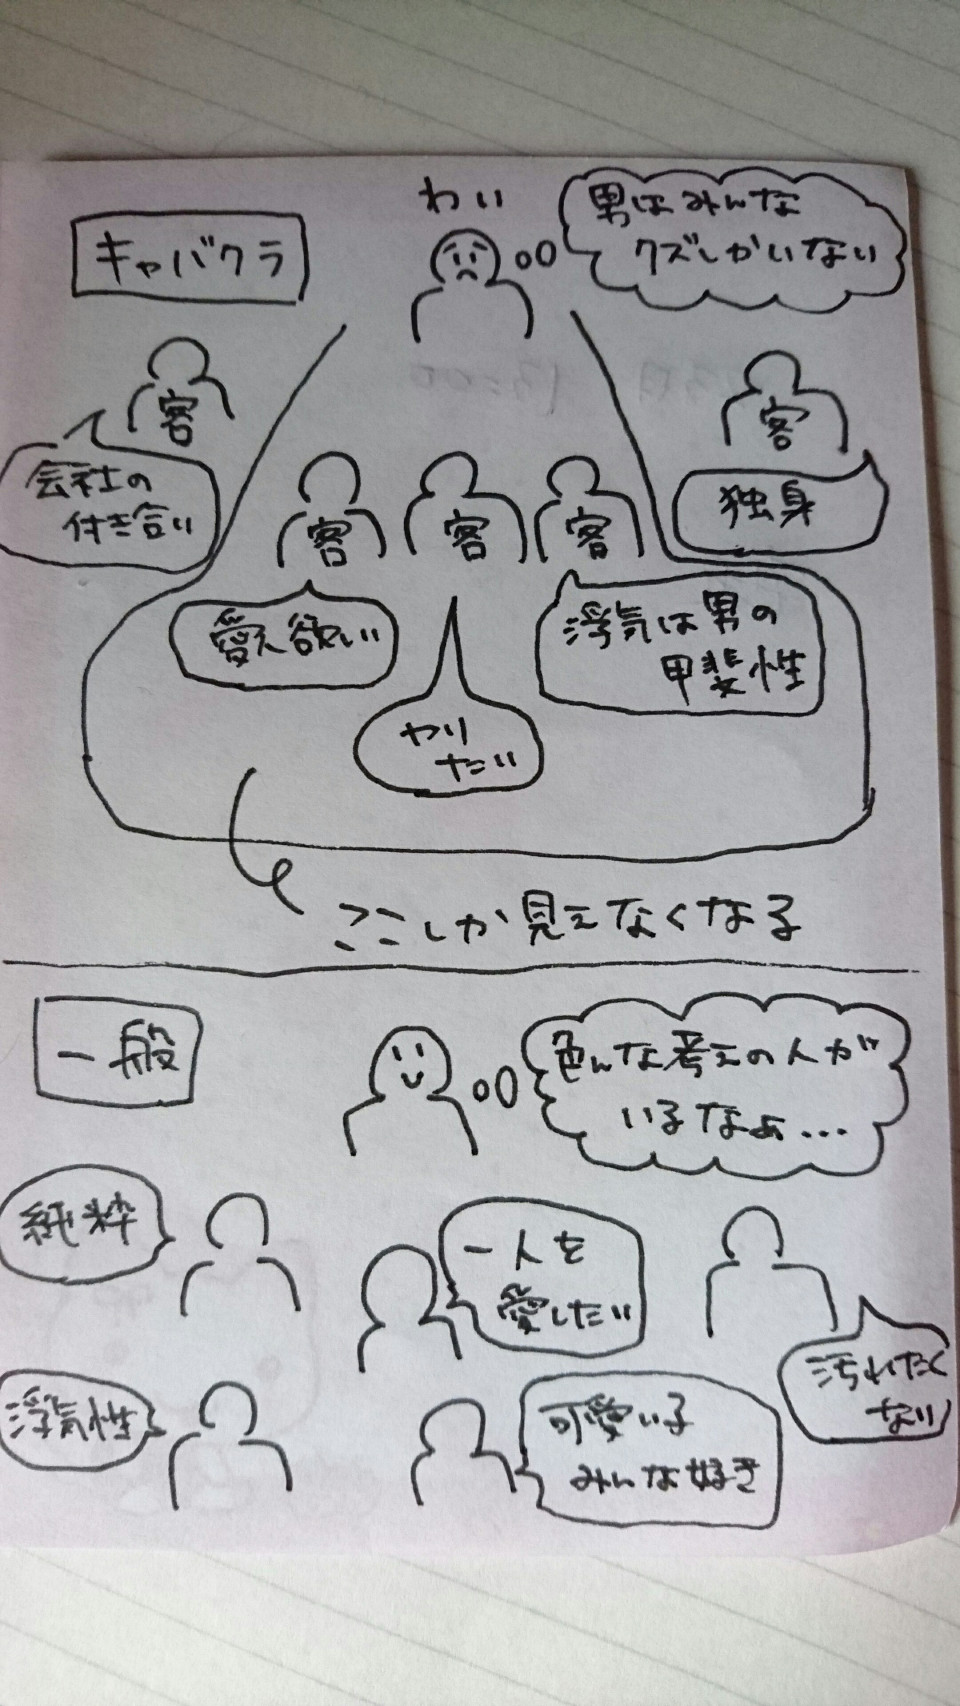 わい
男はみんな
クズしかいない
キャバクラ
客
会社の
付き合い
客
独身
客
客
客
愛え欲しい
ヤリ
たい
浮気は男の
甲斐性
ここしか見えなくなる
一般
色んな考えの人が
いるなぁ...
純粋
一人を
愛したい
汚れたく
ない
浮気性
可愛い子
みんな好き